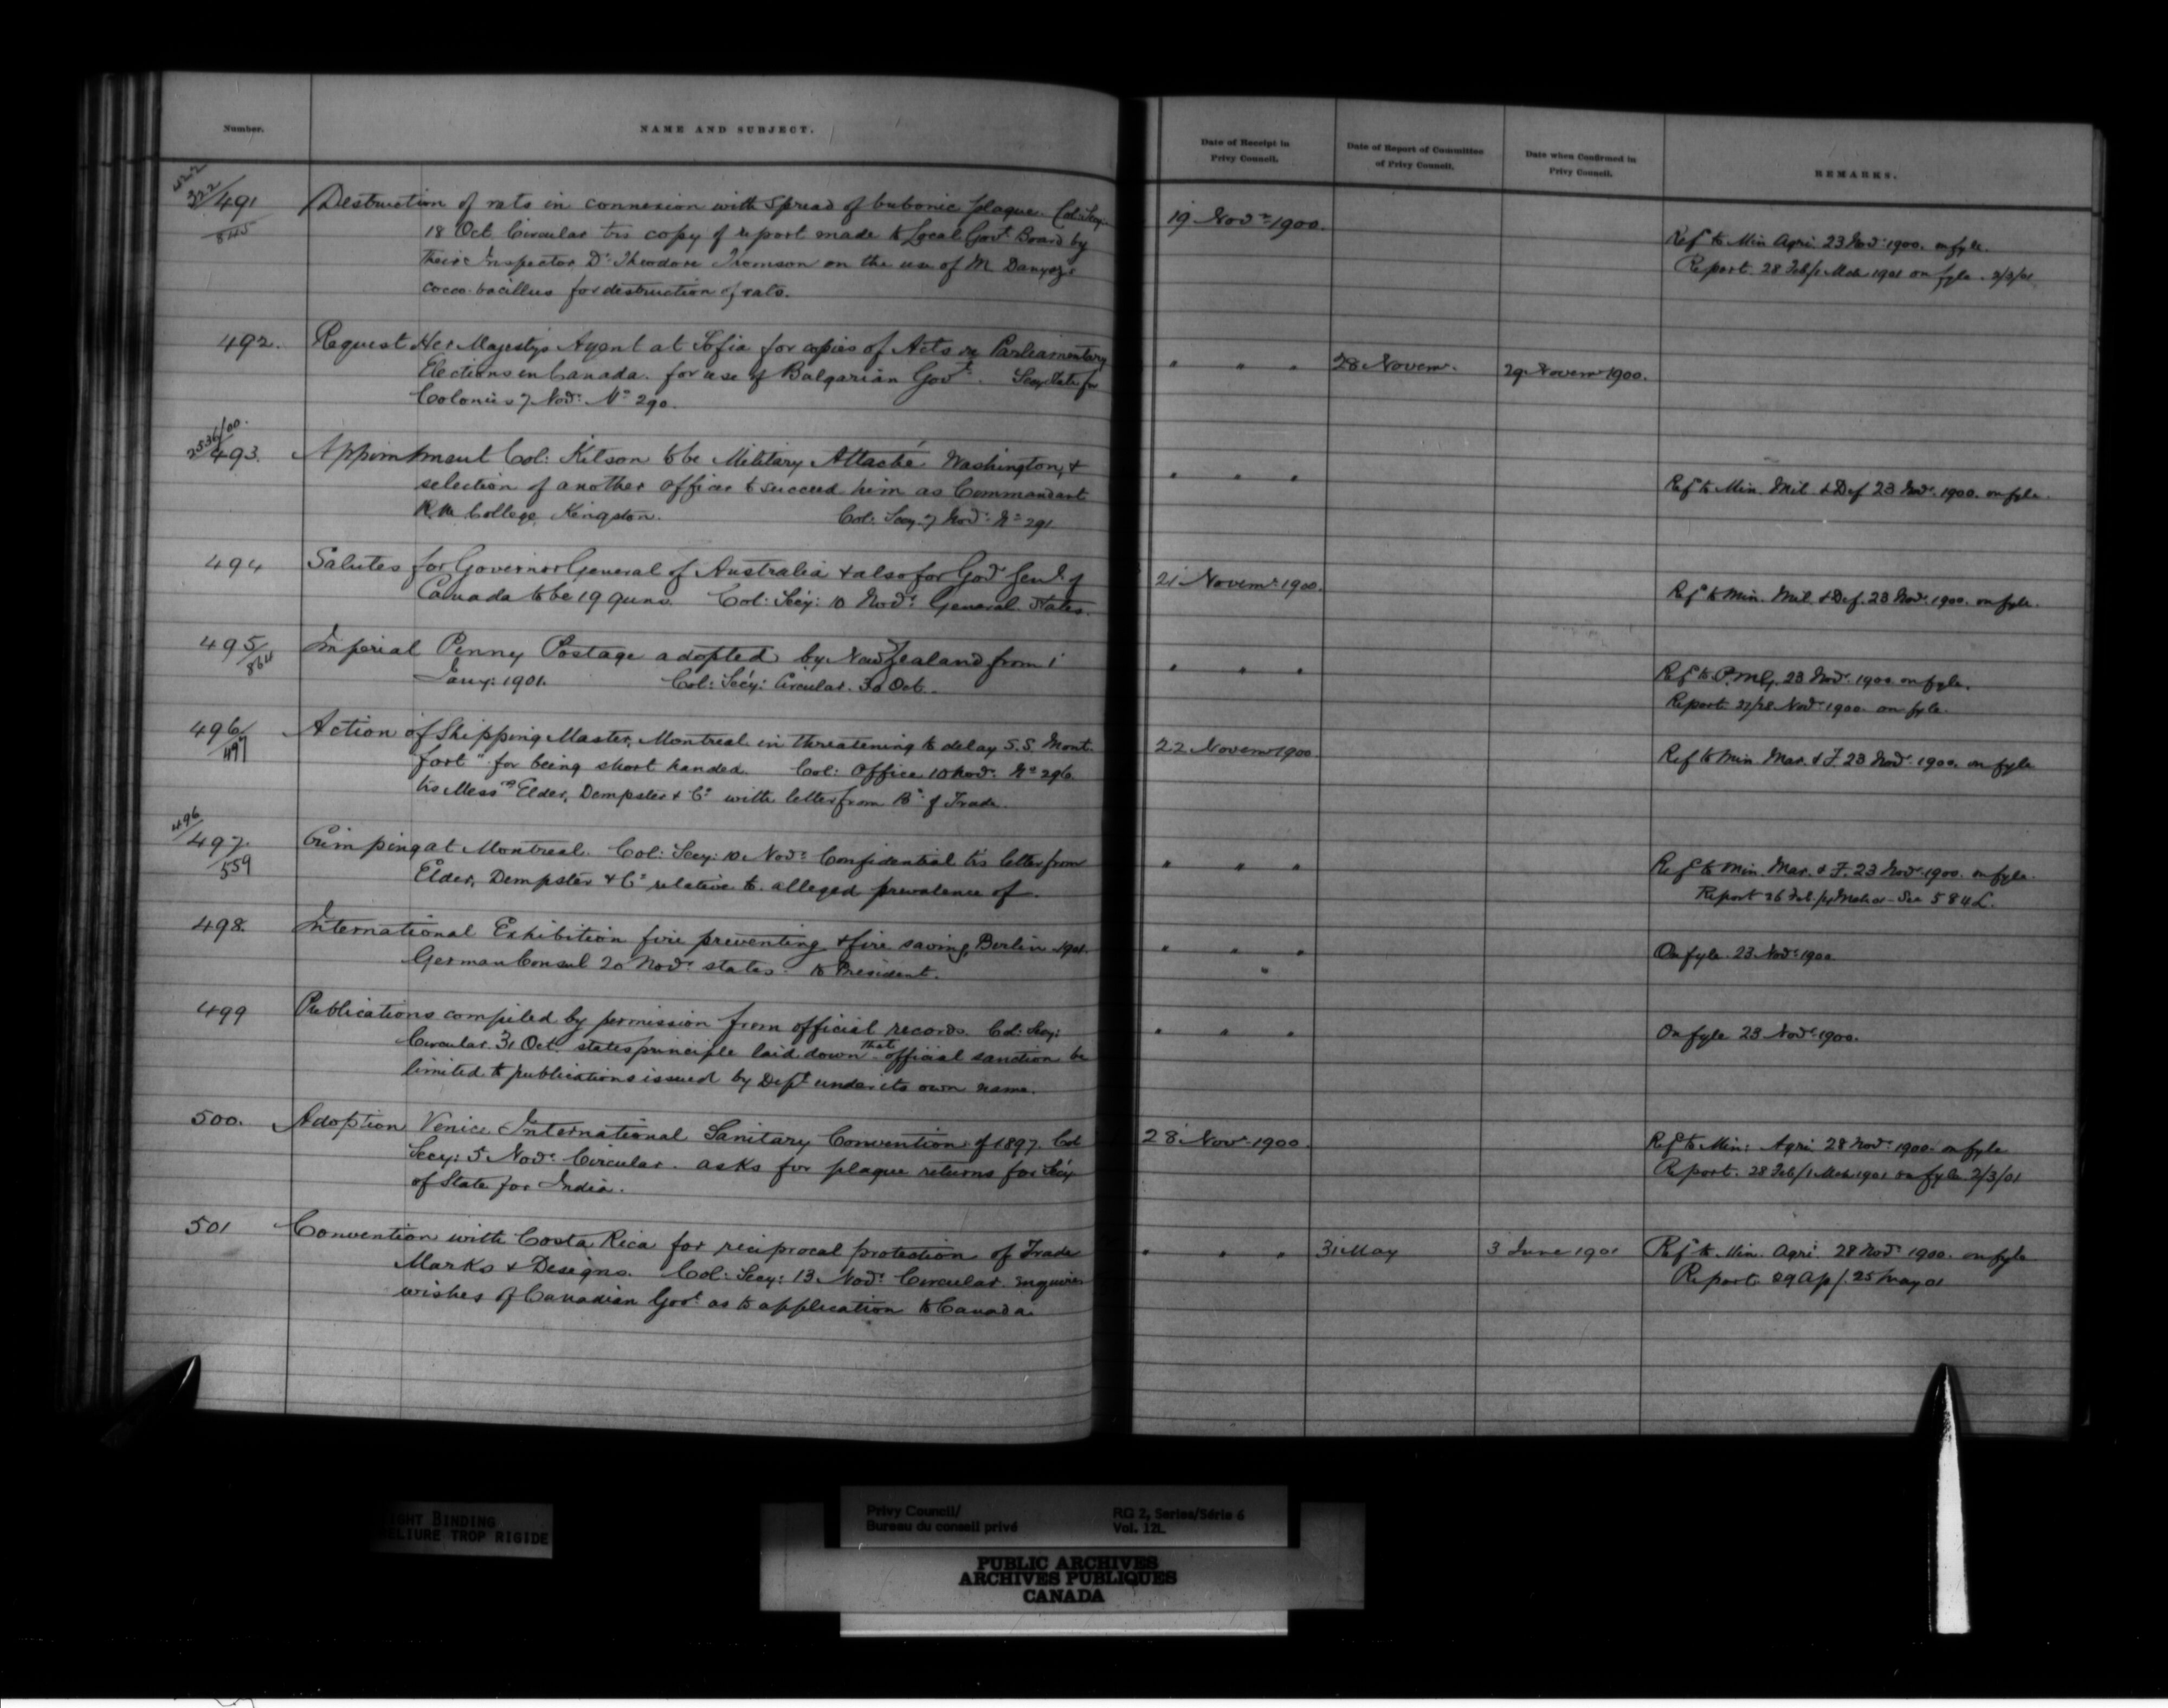 Number.
NAME AND SUBJECT.
Date of Receipt in
Privy Council.
Date of Report of Committee
of Privy Council.
Date when Confirmed in
Privy Council.
REMARKS.
491
Destruction of rats in connexion with spread of bubonic plague. Col: Secy:
18 Oct. Circular trs copy of report made to Local Govt. Board by
their Inspector Dr. Theodore Thomson on the use of M Danysz's
cocco-bacillus for destruction of rats.
19 Novr. 1900.
Ref to Min Agri. 23 Novr. 1900. on fyle.
Report. 28 Feb/1 Mch 1901 on fyle. 2/3/01
492.
Request Her Majestys Agent at Sofia for copies of Acts re Parliamentary
Elections in Canada. for use of Bulgarian Govt. Secy State for
Colonies 7 Novr: No 290.
" " "
28 Novemr.
29 Novemr 1900.
2536/00.
493.
Appointment Col: Kitson to be Military Attaché Washington, &
selection of another officer to succeed him as Commandant
R.M. College, Kingston. Col: Secy. 7 Novr: No 291
" " "
Ref to Min. Mil. & Def 23 Novr. 1900. on fyle.
494
Salutes for Governor General of Australia & also for Govr Genl. of
Canada to be 19 guns. Col: Secy: 10 Novr: General. States.
21 Novemr. 1900.
Ref to Min. Mil. & Def. 23 Novr. 1900. on fyle.
495/864
Imperial Penny Postage adopted by New Zealand from 1
Jany: 1901. Col: Secy: Circular. 30 Oct.
" " "
Ref to P.M.G. 23 Novr. 1900. on fyle.
Report. 27/28 Novr 1900. on fyle.
496/497
Action of Shipping Master, Montreal in threatening to delay S.S. Mont-
fort" for being short handed. Col: Office 10 Novr: No 296
trs Messrs Elder, Dempster & Co with letter from Bd. of Trade.
22 Novemr 1900.
Ref to Min. Mar. & F. 23 Novr. 1900. on fyle
496/
497./559
Crimping at Montreal. Col: Secy: 10 Novr: Confidential trs letter from
Elder, Dempster & Co relative to alleged prevalence of.
" " "
Ref to Min. Mar. & F. 23 Novr. 1900. on fyle.
Report 26 Feb./ See 584 L.
498.
International Exhibition fire preventing & fire saving, Berlin 1901.
German Consul 20 Novr. states. to President.
" " "
"
On fyle. 23 Novr: 1900
499
Publications compiled by permission from official records. Col: Secy:
Circular. 31 Oct. states principle laid down that official sanction be
limited to publications issued by Dept under its own name.
" " "
On fyle 23 Novr. 1900.
500.
Adoption Venice International Sanitary Convention of 1897. Col
Secy: 5 Novr: Circular. asks for plague returns for Secy
of State for India.
28 Novr. 1900.
Ref to Min: Agri 28 Novr. 1900. on fyle
Report. 28 Feb/1 Mch 1901 on fyle 2/3/01
501
Convention with Costa Rica for reciprocal protection of Trade
Marks & Designs. Col: Secy: 13 Novr: Circular. inquires
wishes of Canadian Govt. as to application to Canada.
" " "
31 May
3 June 1901
Ref to Min. Agri 28 Novr 1900. on fyle
Report. 29 Ap/. 25 May 01
IGHT BINDING
ELIURE TROP RIGIDE
Privy Council/
Bureau du conseil privé
RG 2, Series/Série 6
Vol. 12L
PUBLIC ARCHIVES
ARCHIVES PUBLIQUES
CANADA